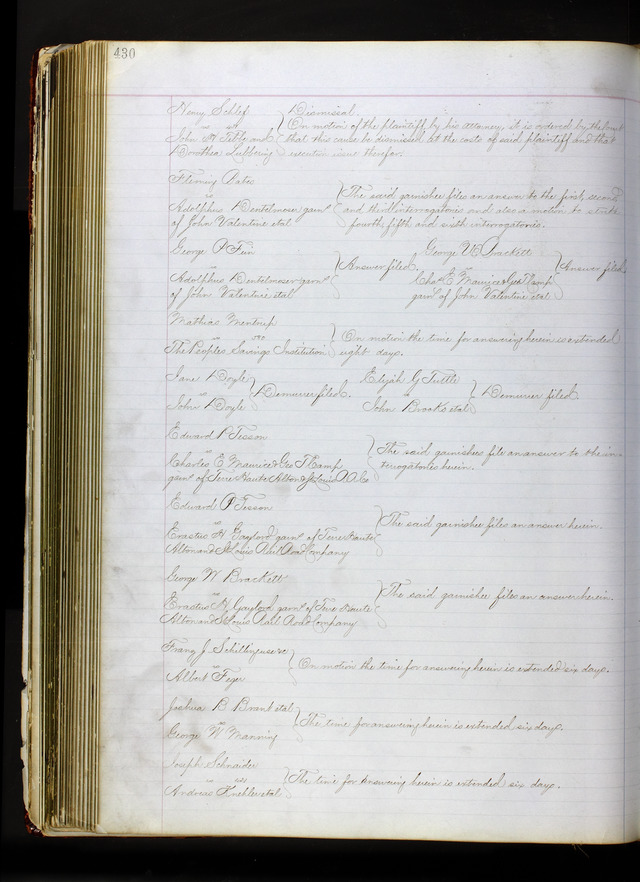 430
Henry Schlef } Dismissal
vs
John H Tibby and } On motion of the plaintiff by his attorney, it is ordered by the Court
Dorothea Lubbering } that this cause be dismissed at the costs of said plaintiff and that
execution issue therefor.
Fleming Pates
vs
Adolphus Dentelmoser garne } The said garnishee files an answer to the first, second
of John Valentine etal } and third interrogatories and also a motion to strike
fourth, fifth and sixth interrogatories.
George P
vs } Answer filed.
Adolphus Dentelmoser garne
of John Valentine etal
George W Brackett
vs } Answer filed
Chas E Maurice & Geo T Camp
garne of John Valentine etal
Mathias Mentrup
vs } On motion the time for answering herein is extended
The Peoples Savings Institution } eight days.
Jane Doyle
vs } Demurrer filed.
John Doyle
Elijah G Tuttle
vs } Demurrer filed
John Brooks etal
Edward P Tesson
vs } The said garnishees file an answer to the in-
Charles E Maurice & Geo T Camp } terrogatories herein.
garne of Terre Haute Alton & St Louis R R Co
Edward P Tesson
vs } The said garnishee files an answer herein.
Erastus H Gaylord garne of Terre Haute
Alton and St Louis Rail Road Company
George W Brackett
vs } The said garnishee files an answer herein.
Erastus H Gaylord garne of Terre Haute
Alton and St Louis Rail Road Company
Franz J
vs } On motion the time for answering herein is extended six days.
Albert Feyer
Joshua B Brant etal
vs } The time for answering herein is extended six days.
George W Manning
Joseph Schnaider
vs } The time for answering herein is extended six days.
Andreas Knehler etal